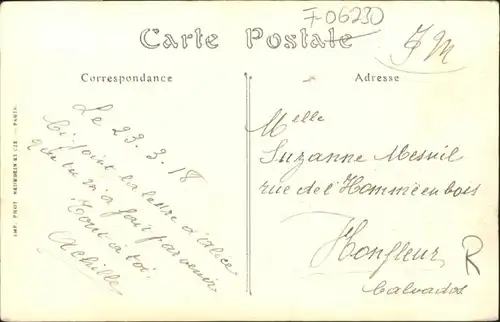 F 06230
Carte Postale
F M
Correspondance
Adresse
Le 23.3.18
Ci-joint la lettre d'alice
que tu m'a fait parvenir
Tout à toi.
Achille
Melle
Suzanne Mesnil
rue de l'Homme en bois
Honfleur
Calvados
R
IMP. PHOT. NEURDEIN ET CIE. — PARIS.